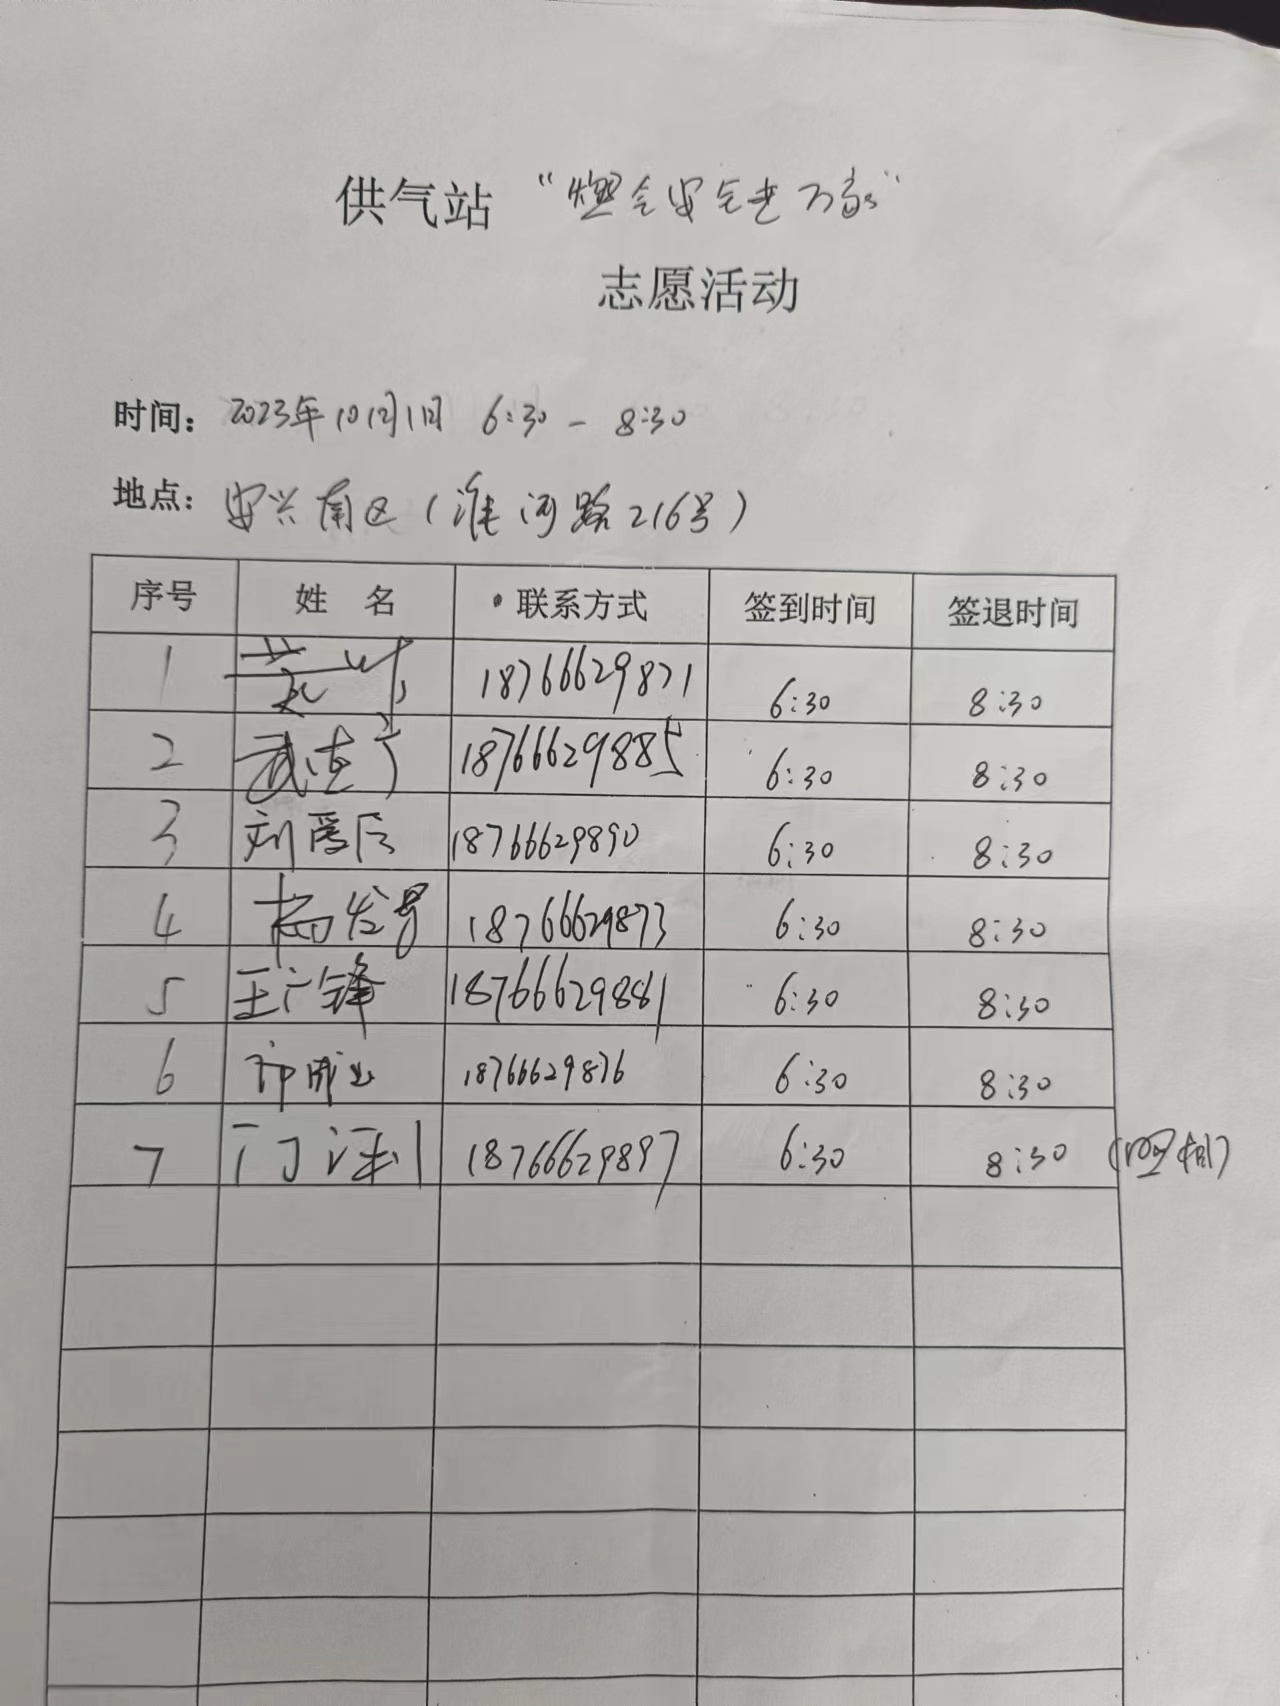 供气站 “燃气安全进万家”
志愿活动
时间: 2023年10月1日 6:30 - 8:30
地点: 安兴南区(淮河路216号)
序号 姓 名 联系方式 签到时间 签退时间
1 18766629871 6:30 8:30
2 18766629885 6:30 8:30
3 刘爱民 18766629890 6:30 8:30
4 18766629873 6:30 8:30
5 王广锋 18766629881 6:30 8:30
6 18766629876 6:30 8:30
7 18766629897 6:30 8:30 (照相)